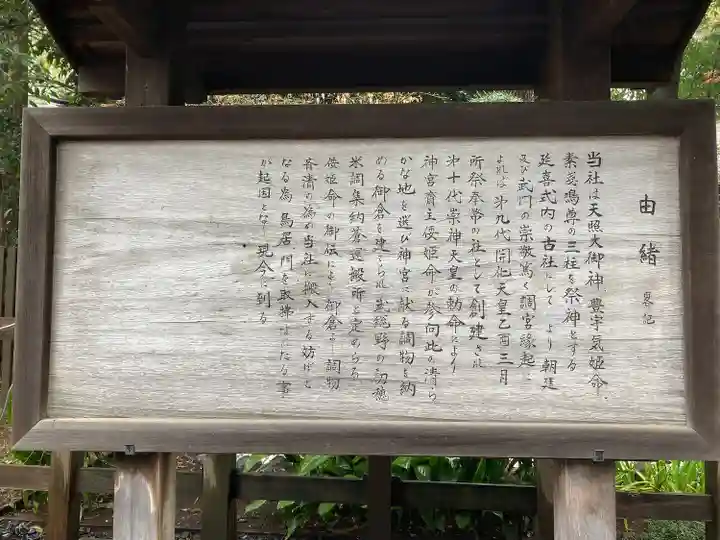 由緒 畧記
当社は天照大御神、豊宇気姫命、
素盞嗚尊の三柱を祭神とする
延喜式内の古社にして より朝廷
及び武門の崇敬篤く調宮縁起に
よれば 第九代開化天皇乙酉三月
所祭奉幣の社として創建され
第十代崇神天皇の勅命により
神宮斎主倭姫命が参向此の清ら
かな地を選び神宮に献る調物を納
める御倉を建てられ武総野の初穂
米調集納蒼運搬所と定めらる
倭姫命の御伝により御倉より調物
斉清の為め当社に搬入する妨げと
なる為 鳥居 門を取拂はれたる事
が起因となり現今に到る